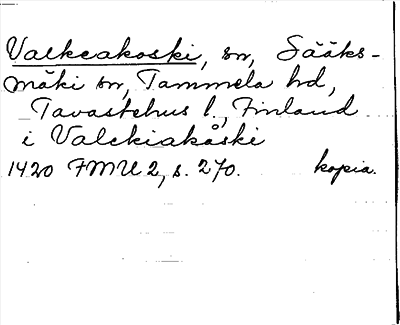 Valkeakoski, sn, Sääks-
mäki sn, Tammela hd,
Tavastehus l., Finland
i Valckiakåski
1420 FMU 2, s. 270. kopia.